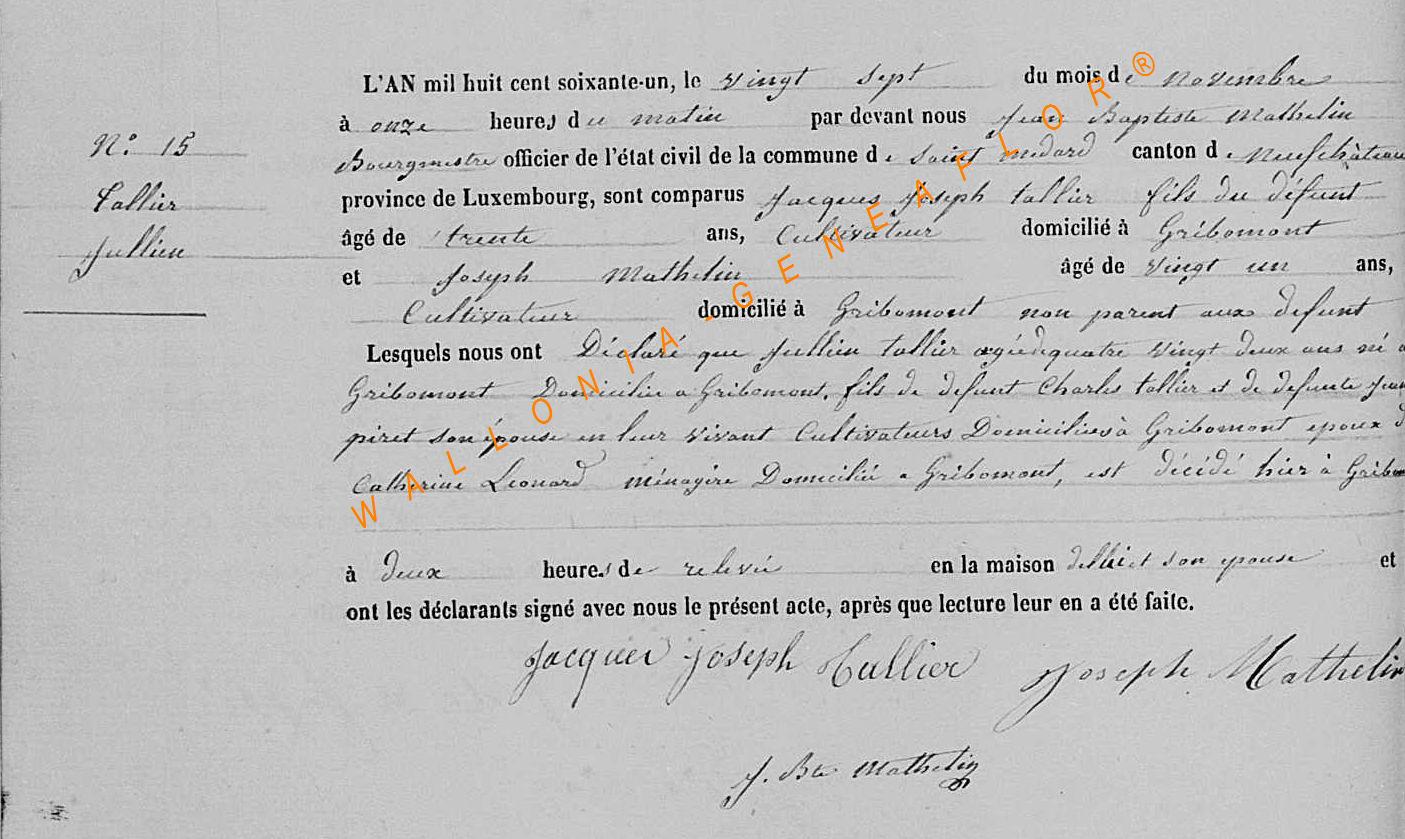 L'AN mil huit cent soixante-un, le vingt sept du mois de novembre
à onze heures du matin par devant nous Jean Baptiste Mathelin
N.° 15
Bourgmestre officier de l'état civil de la commune de Saint medard canton de Neufchâteau
Tallier
province de Luxembourg, sont comparus Jacques Joseph tallier fils du défunt
âgé de trente ans, Cultivateur domicilié à Gribomont
Jullien
et Joseph Mathelin âgé de vingt un ans,
Cultivateur domicilié à Gribomont non parent aux defunt
Lesquels nous ont Déclaré que Jullien tallier quatre vingt deux ans né a
Gribomont Domicilie a Gribomont, fils de defunt Charles tallier et de defunte
piret son épouse en leur vivant Cultivateurs Domiciliés à Gribomont epoux d
Catherine Leonard ménagire Domicilié a Gribomont, est décidé hier à Gribom
à deux heures de relevée en la maison son epouse et
ont les déclarants signé avec nous le présent acte, après que lecture leur en a été faite.
Jacques Joseph Tallier Joseph Mathelin
J. Bte Mathelin
WALLONIA-GENEAFLOR®